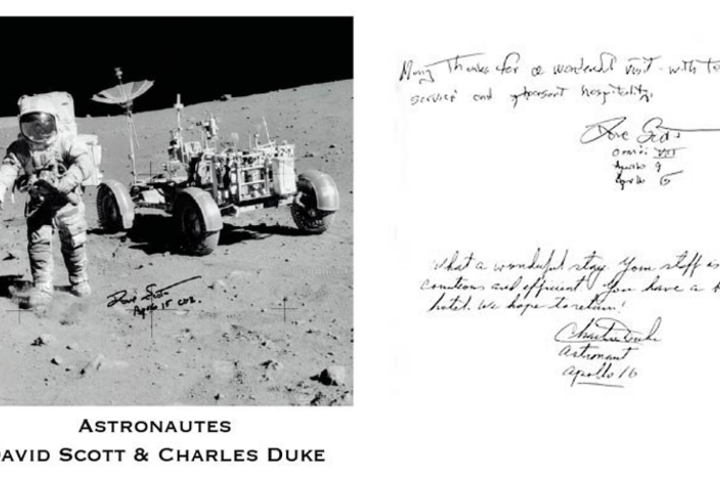 Dave Scott
Apollo 15 CDR.
ASTRONAUTES
DAVID SCOTT & CHARLES DUKE
Many Thanks for a wonderful visit - with
service and pleasant hospitality.
Dave Scott
Apollo 9
Apollo 15
What a wonderful stay. Your staff is
courteous and efficient. You have a
hotel. We hope to return!
Charlie Duke
Astronaut
Apollo 16